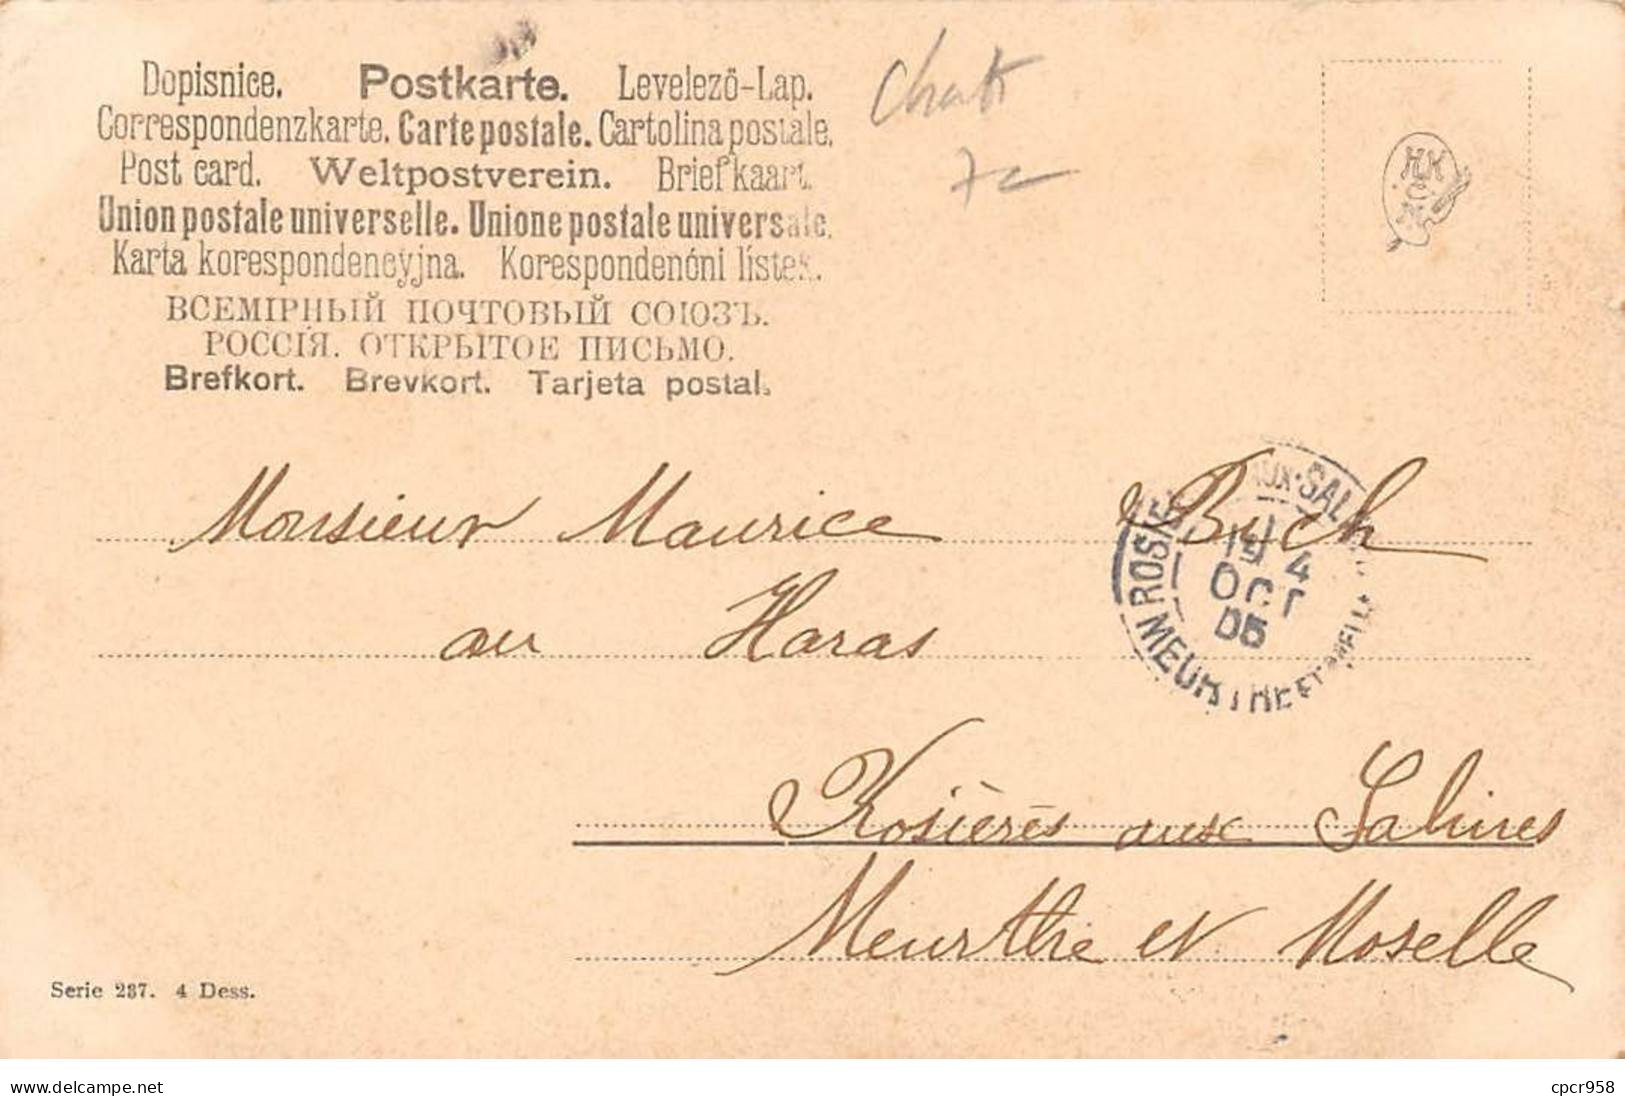 Dopisnice. Postkarte. Levelező-Lap.
Correspondenzkarte. Carte postale. Cartolina postale.
Post card. Weltpostverein. Briefkaart.
Union postale universelle. Unione postale universale.
Karta korespondencyjna. Korespondenćni lístek.
ВСЕМІРНЫЙ ПОЧТОВЫЙ СОЮЗЪ.
РОССІЯ. ОТКРЫТОЕ ПИСЬМО.
Brefkort. Brevkort. Tarjeta postal.
HK
Monsieur Maurice Buch
au Haras
Rosières aux Salines
Meurthe et Moselle
ROSIE AUX-SAL
4
OCT
05
MEURTHE ET
Serie 237. 4 Dess.
www.delcampe.net
cpcr958